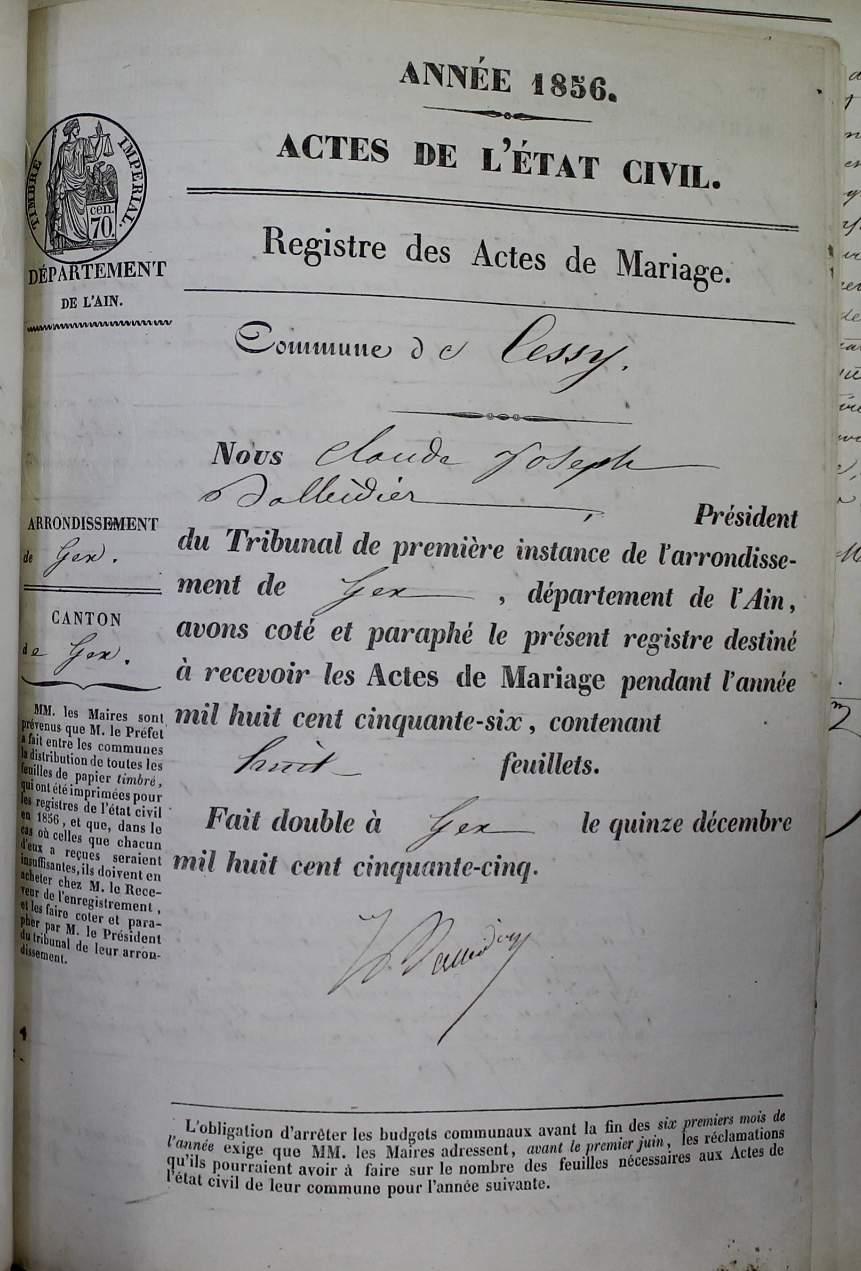 ANNÉE 1856.
ACTES DE L'ÉTAT CIVIL.
TIMBRE IMPERIAL.
cen.
70.
DÉPARTEMENT
DE L'AIN.
Registre des Actes de Mariage.
Commune de Cessy.
Nous Claude Joseph
, Président
du Tribunal de première instance de l'arrondisse-
ment de Gex , département de l'Ain,
avons coté et paraphé le présent registre destiné
à recevoir les Actes de Mariage pendant l'année
mil huit cent cinquante-six, contenant
huit feuillets.
Fait double à Gex le quinze décembre
mil huit cent cinquante-cinq.
ARRONDISSEMENT
de Gex.
CANTON
de Gex.
MM. les Maires sont
prévenus que M. le Préfet
a fait entre les communes
la distribution de toutes les
feuilles de papier timbré,
qui ont été imprimées pour
les registres de l'état civil
en 1856, et que, dans le
cas où celles que chacun
d'eux a reçues seraient
insuffisantes, ils doivent en
acheter chez M. le Rece-
veur de l'enregistrement,
et les faire coter et para-
pher par M. le Président
du tribunal de leur arron-
dissement.
L'obligation d'arrêter les budgets communaux avant la fin des six premiers mois de
l'année exige que MM. les Maires adressent, avant le premier juin, les réclamations
qu'ils pourraient avoir à faire sur le nombre des feuilles nécessaires aux Actes de
l'état civil de leur commune pour l'année suivante.